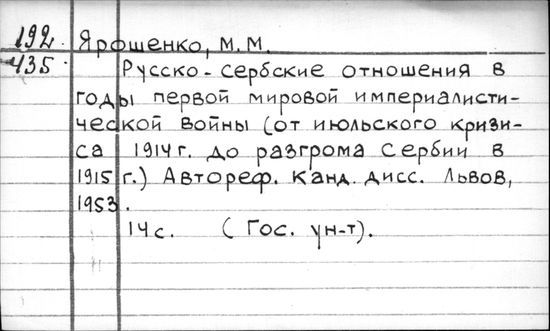 192. Ярошенко, М.М.
435. Русско-сербские отношения в
годы первой мировой империалисти-
ческой войны (от июльского кризи-
са 1914г. до разгрома Сербии в
1915г.) Автореф. канд. дисс. Львов,
1953.
14с. (Гос. ун-т).